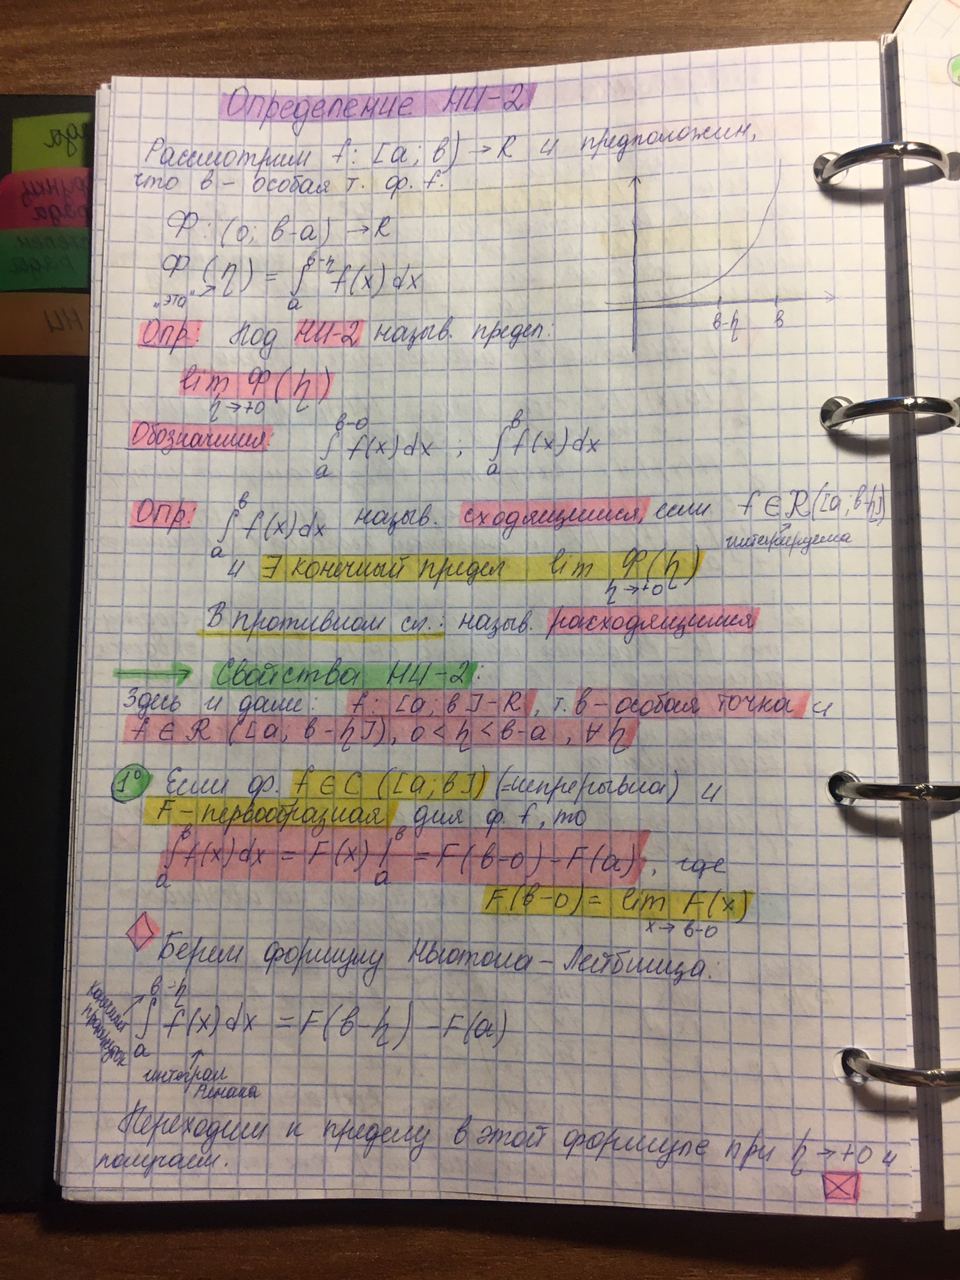 Определение НИ-2
Рассмотрим f: [a; в) → R и предположим,
что в - особая т. ф. f.
Ф: (0; в-a) → R
Ф(η) = ∫ₐᵇ⁻ᶯ f(x)dx
"эта"
в-η в
Опр: Под НИ-2 назыв. предел:
lim Ф(η)
η→+0
Обозначения ∫ₐᵇ⁻⁰ f(x)dx ; ∫ₐᵇ f(x)dx
Опр: ∫ₐᵇ f(x)dx назыв. сходящимися, если f ∈ R([a; в-η])
интегрируема
и ∃ конечный предел lim Ф(η)
η→+0
В противном сл.: назыв. расходящимися
→ Свойства НИ-2:
Здесь и дали: f: [a; в]-R, т. в - особая точка и
f ∈ R ([a, в-η]), 0<η<в-a, ∀η
1° Если ф. f ∈ C ([a; в]) (=непрерывна) и
F - первообразная для ф. f, то
∫ₐᵇ f(x)dx = F(x)|ₐᵇ = F(в-0) - F(a), где
F(в-0) = lim F(x)
x→в-0
Берем формулу Ньютона-Лейбница:
∫ₐᵇ⁻ᶯ f(x)dx = F(в-η) - F(a)
интеграл
Римана
Переходим к пределу в этой формуле при η→+0 и
получаем.